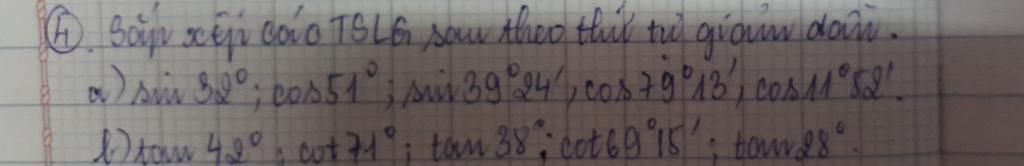 ④. Sắp xếp các TSLG sau theo thứ tự giảm dần.
a) sin 32°; cos 51°; sin 39°24'; cos 79°13'; cos 11°52'.
b) tan 42°; cot 71°; tan 38°; cot 69°15'; tan 28°.